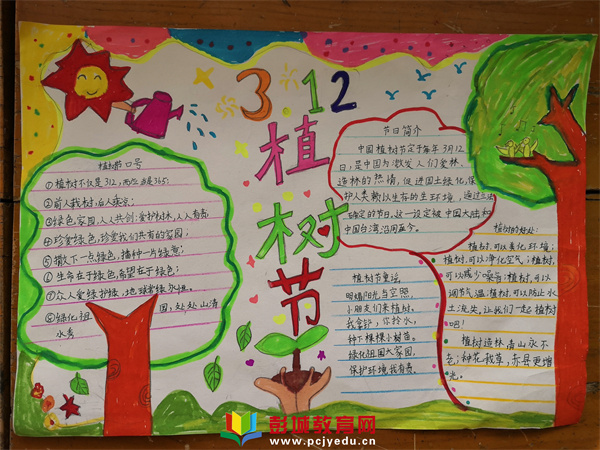 3.12
植树节
植树节口号
①植树不仅是312,而应该是365;
②前人栽树,后人乘凉;
③绿色家园,人人共创;爱护树林,人人有责;
④珍爱绿色,珍爱我们共有的家园;
⑤撒下一点绿色,播种一片绿意;
⑥生命在于绿色,希望在于绿色;
⑦众人爱绿护绿,地球常绿永恒。
⑧绿化祖国,处处山清
水秀
节日简介
中国植树节定于每年3月12
日,是中国为激发人们爱林、
造林的热情,促进国土绿化,保
护人类赖以生存的生态环境,通过立法
确定的节日,这一设定被中国大陆和
中国台湾沿用至今。
植树节童谣
明媚阳光当空照,
小朋友们来植树。
我拿铲,你拎水,
种下棵棵小树苗。
绿化祖国大家园,
保护环境我有责。
植树的好处:
植树,可以美化环境;
植树,可以净化空气;植树,
可以减少噪音;植树,可以
调节气温;植树,可以防止水
土流失,让我们一起植树
吧!
植树造林青山永不
老;种花栽草,赤县更增
光。
彭城教育网
www.pcjyedu.cn